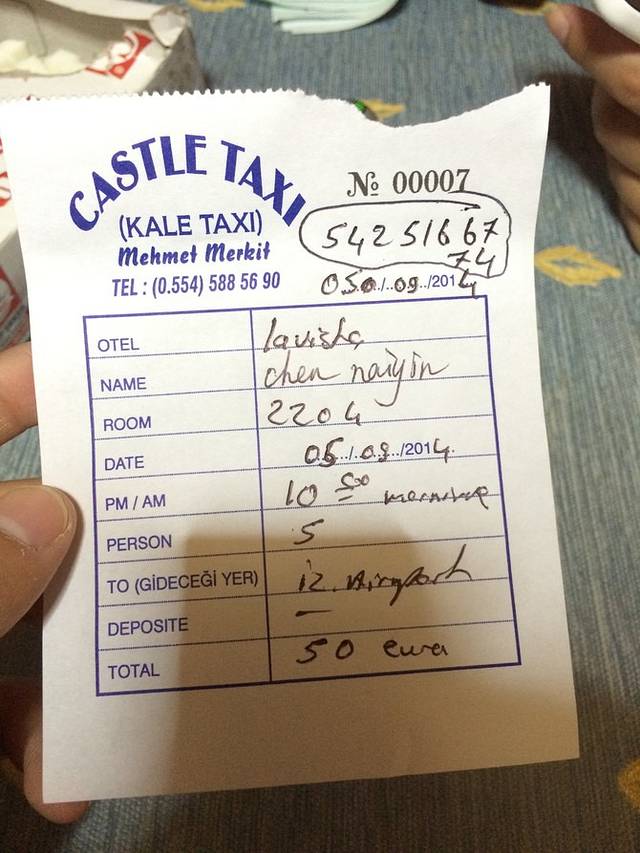 CASTLE TAXI
№ 00007
(KALE TAXI)
Mehmet Merkit
TEL : (0.554) 588 56 90
542 516 67
74
/..09../2014
OTEL
NAME chen naiyin
ROOM 2204
DATE 05../..09../2014
PM / AM 10 00
PERSON 5
TO (GİDECEĞİ YER) iz. Airport
DEPOSITE —
TOTAL 50 euro